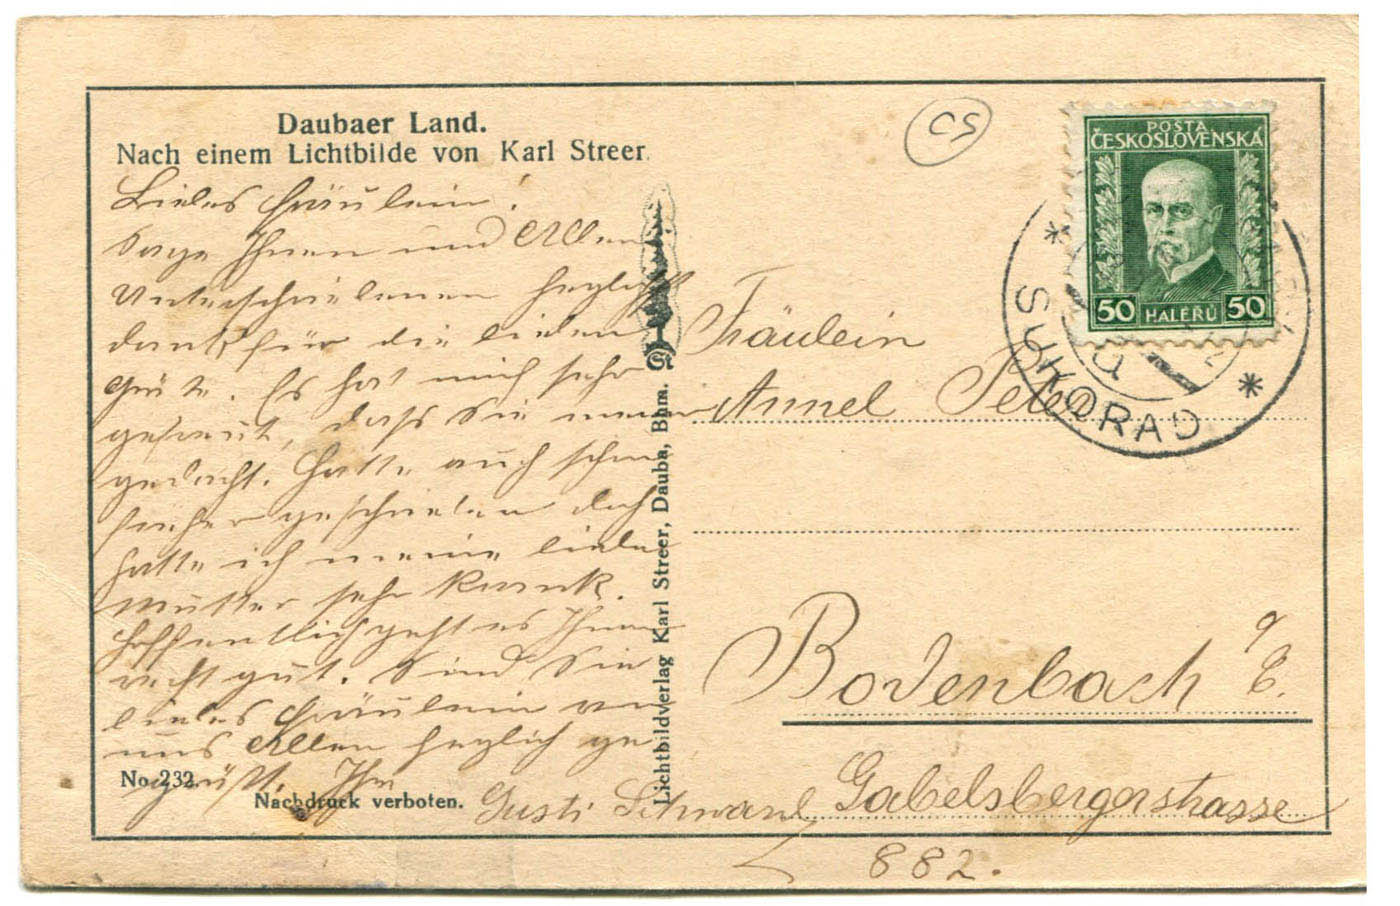 Daubaer Land.
Nach einem Lichtbilde von Karl Streer.
Liebes Fräulein!
Sage Ihnen und Allen
Unterschriebenen herzlichst
Dank für die lieben
Grüße. Es hat mich sehr
gefreut, daß Sie meiner
gedacht. Hätte auch schon
früher geschrieben doch
hatte ich meine liebe
Mutter sehr krank.
Hoffentlich geht es Ihnen
recht gut. Sind Sie
liebes Fräulein von
uns Allen herzlich ge
grüßt. Ihre
Gusti
No. 232.
Nachdruck verboten.
Lichtbildverlag Karl Streer, Dauba, Bhm.
St
CS
POŠTA
ČESKOSLOVENSKÁ
50 HALÉŘŮ 50
SUKORAD
Fräulein
Annel
Bodenbach a/E.
Gabelsbergerstrasse
882.